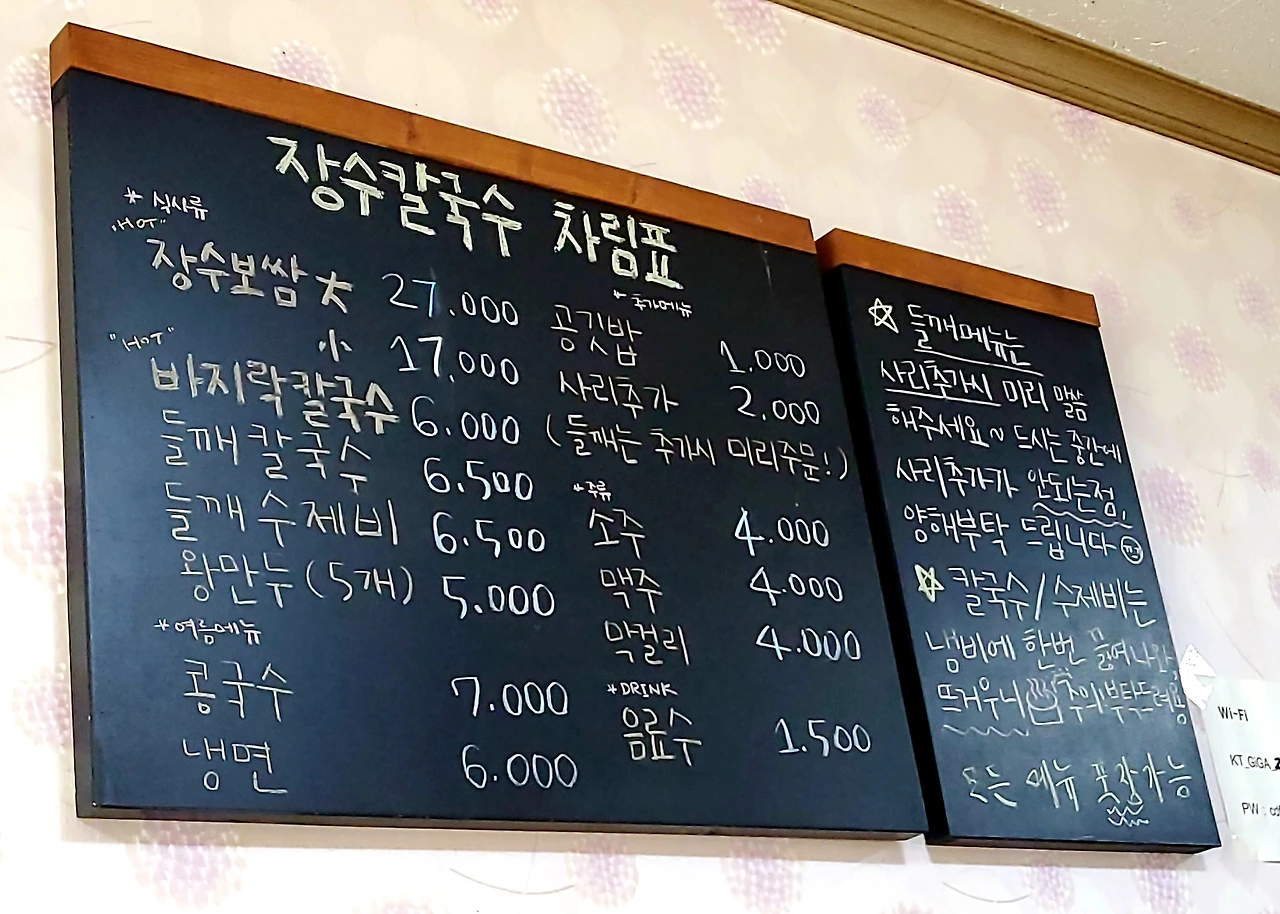 장수칼국수 차림표
* 식사류
"HOT"
장수보쌈 大 27.000
小 17.000
"HOT"
바지락칼국수 6.000
들깨칼국수 6.500
들깨수제비 6.500
왕만두(5개) 5.000
* 여름메뉴
콩국수 7.000
냉면 6.000
* 추가메뉴
공깃밥 1.000
사리추가 2.000
(들깨는 추가시 미리주문!)
* 주류
소주 4.000
맥주 4.000
막걸리 4.000
* DRINK
음료수 1.500
☆ 들깨메뉴는
사리추가시 미리 말씀
해주세요~ 드시는 중간에
사리추가가 안되는점,
양해부탁 드립니다
☆ 칼국수/수제비는
냄비에 한번 끓여나와
뜨거우니 주의부탁드려용
모든 메뉴 포장가능
Wi-Fi
KT_GiGA_2
PW :